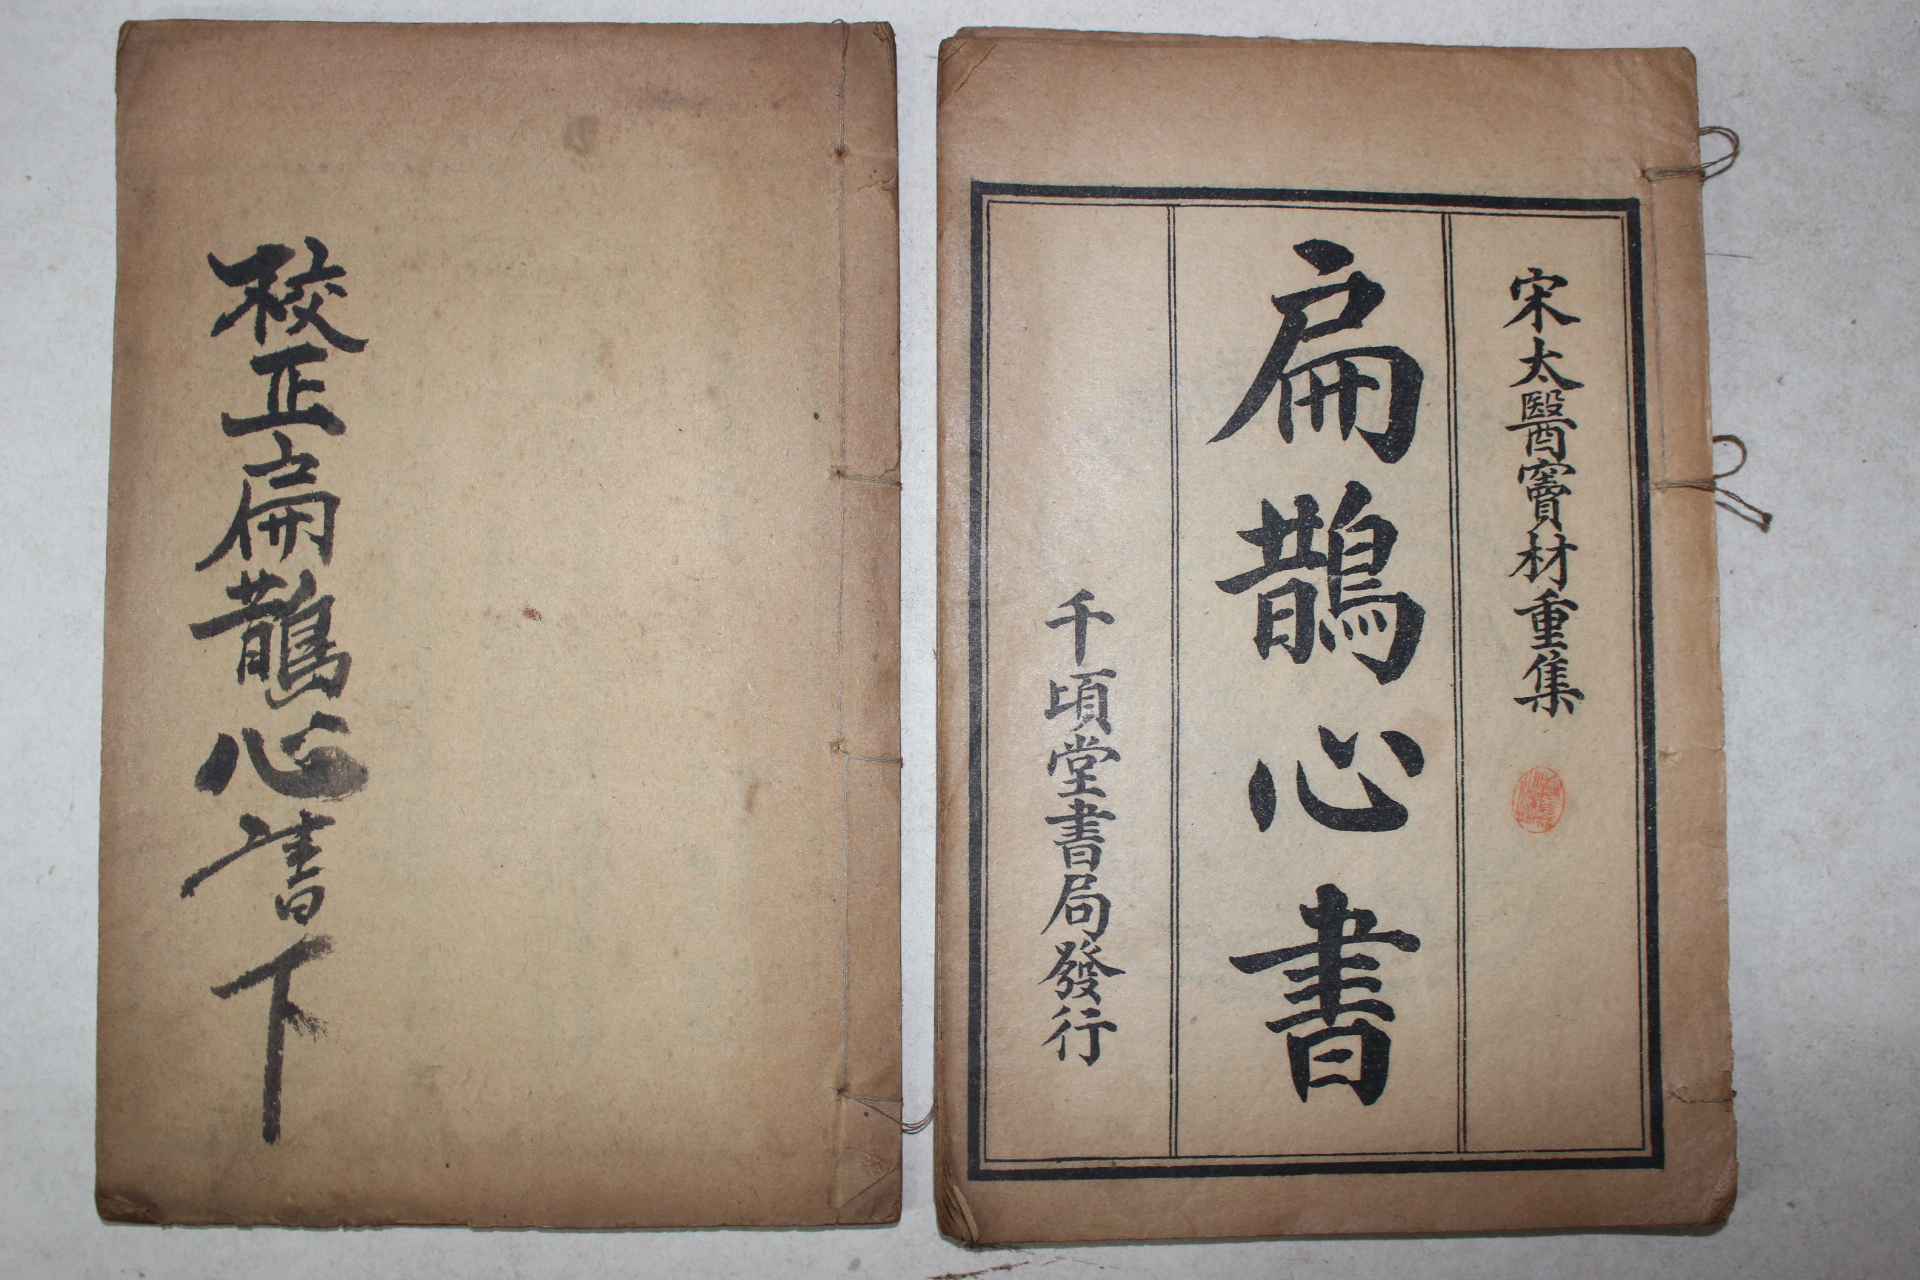 校正扁鵲心書下
宋太醫竇材重集
扁鵲心書
千頃堂書局發行